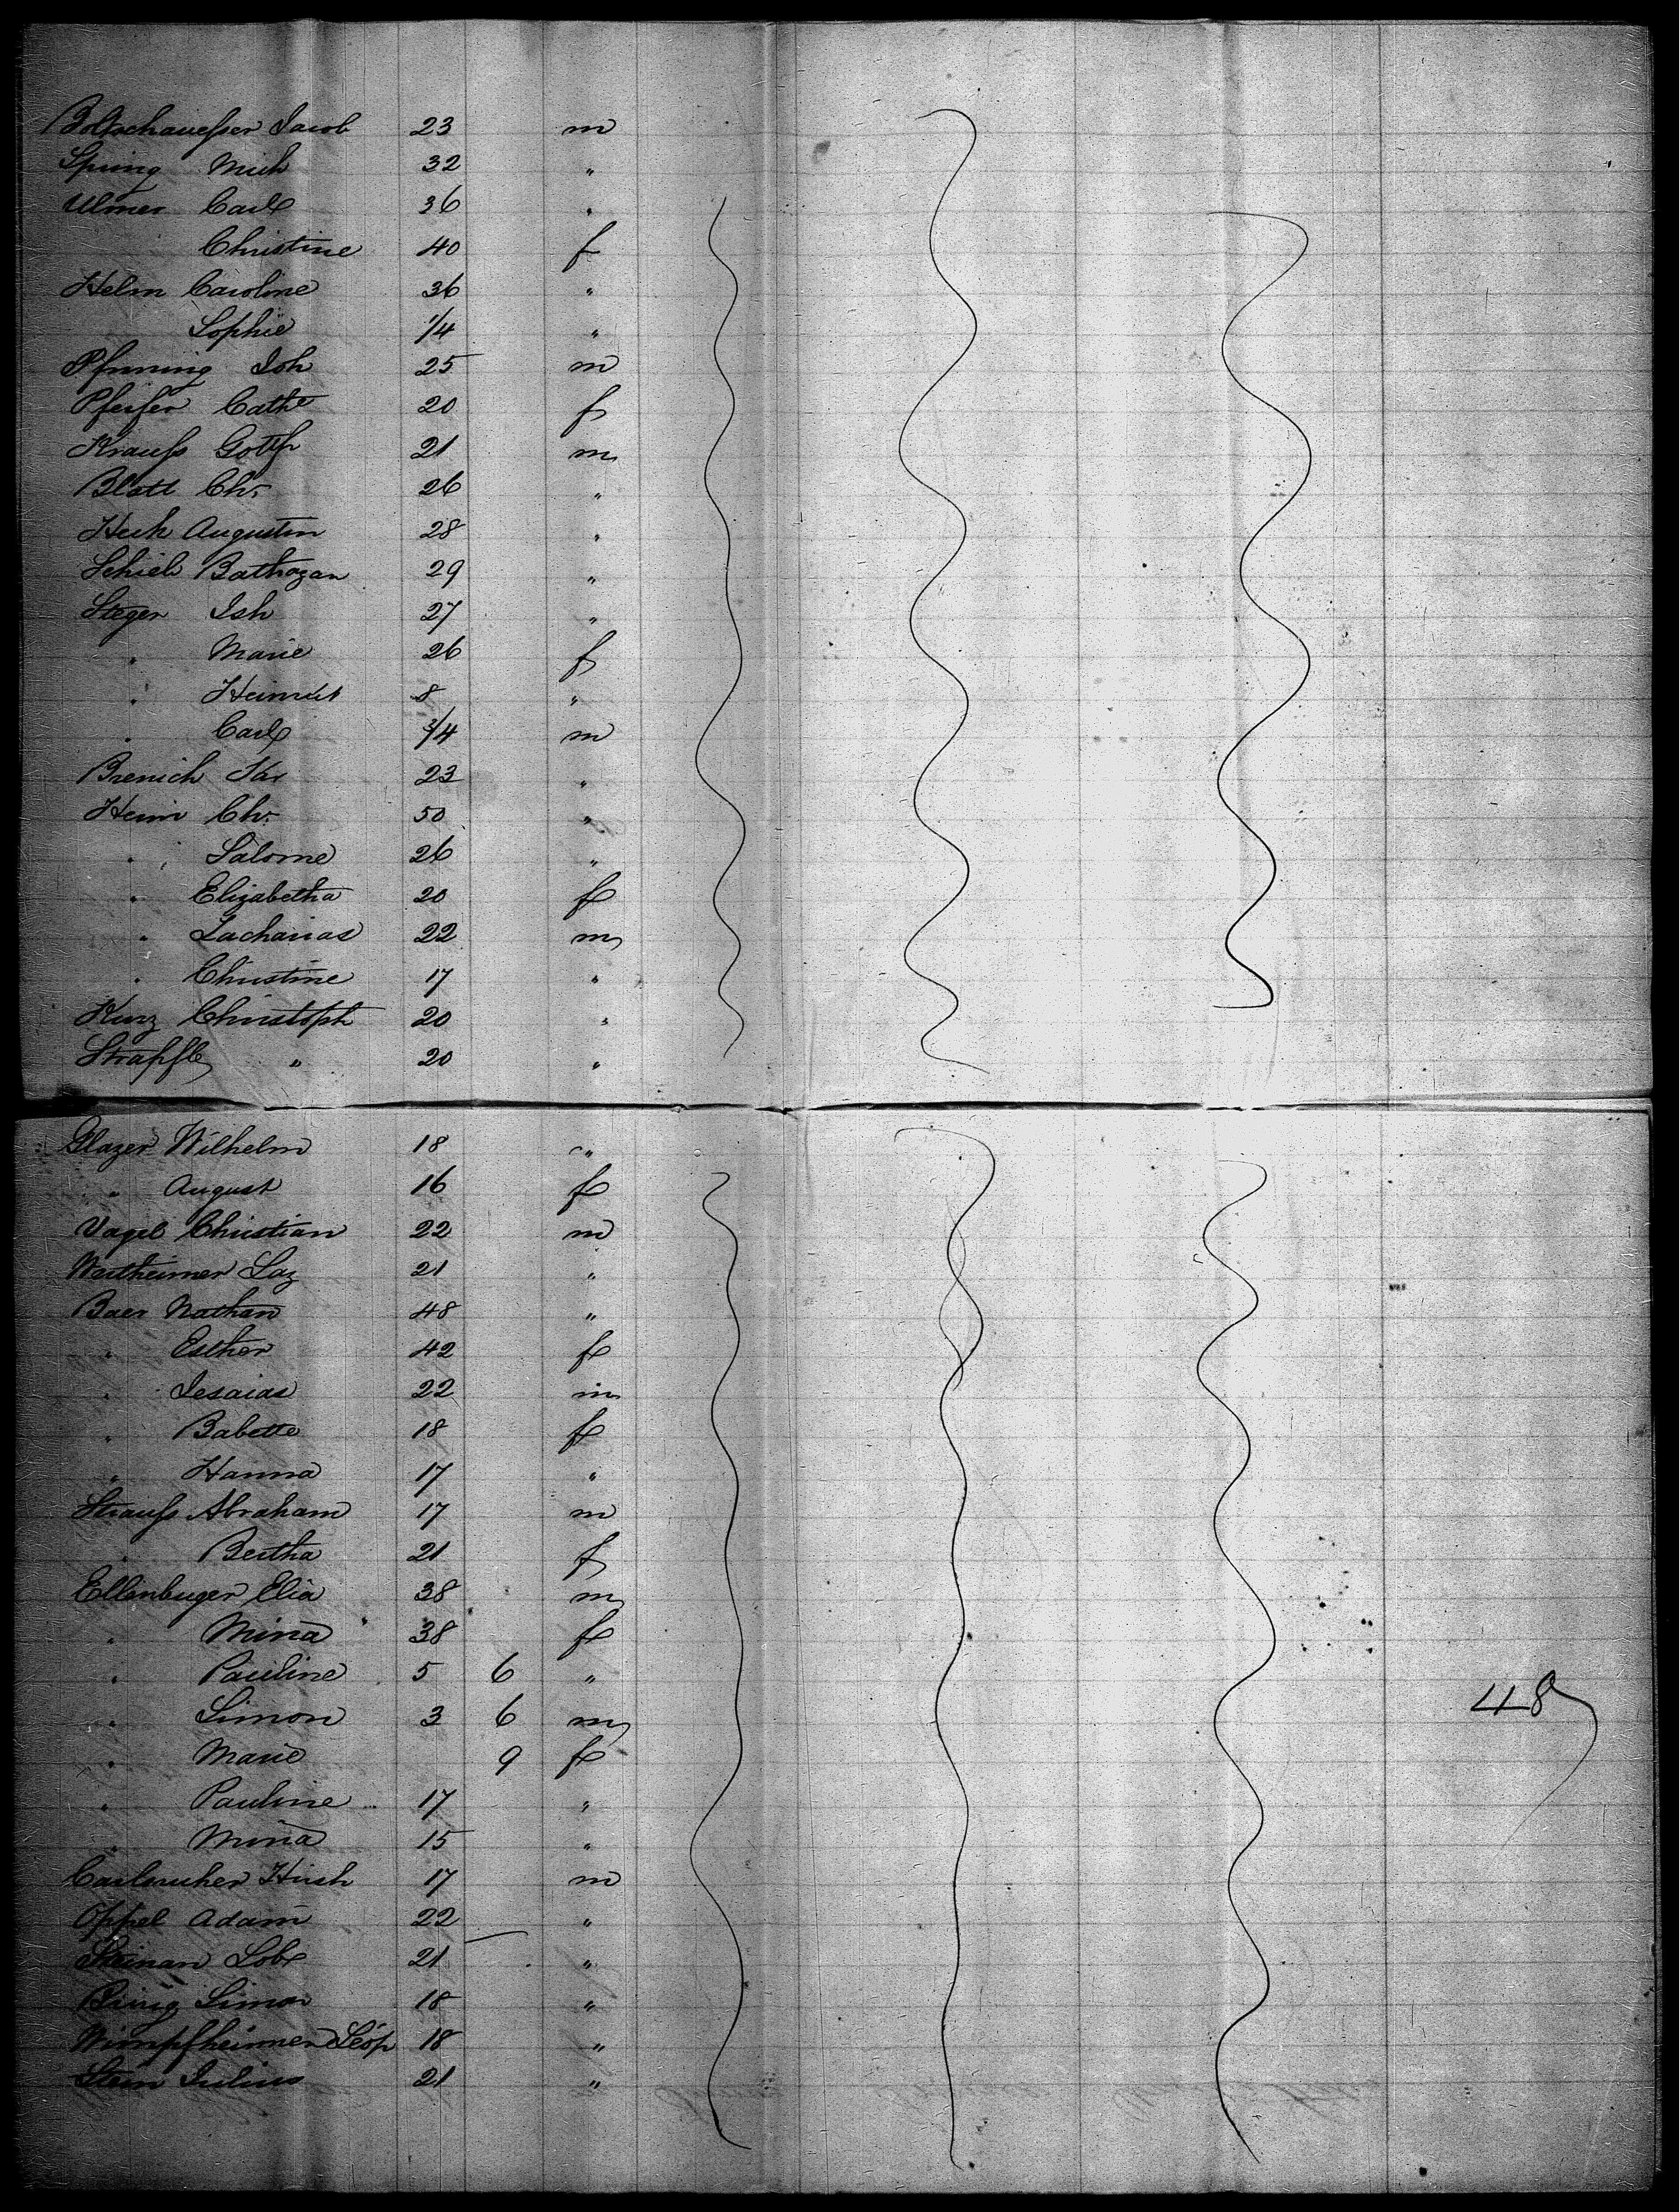 Boltschauesser Jacob 23 m
Spring Mich 32 "
Ulmer Carl 36 "
Christine 40 f
Helm Caroline 36 "
Sophie 1/4 "
Pfnning Joh 25 m
Pfeifer Cathe 20 f
Krauss Gottfr 21 m
Blatt Chr 26 "
Heck Augustin 28 "
Schieb 29 "
Steger Joh 27 "
" Marie 26 f
" 8 "
" Carl 3/4 m
Brenich 23 "
Heim Chr 50 "
" Salome 26 "
" Elizabetha 20 f
" Zacharias 22 m
" Christine 17 "
Kurz Christoph 20 "
Strapfle " 20 "
Glazer Wilhelm 18 "
" August 16 f
Vogel Christian 22 m
Wertheimer Laz 21 "
Baer Nathan 48 "
" Esther 42 f
" Jesaias 22 m
" Babette 18 f
" Hanna 17 "
Strauss Abraham 17 m
" Bertha 21 f
Ellenbuger Elia 38 m
" Mina 38 f
" Pauline 5 6 "
" Simon 3 6 m
" Marie 9 f
" Pauline 17 "
" Mina 15 "
Carlsruher Hirsh 17 m
Oppel Adam 22 "
Steinan Lob 21 "
Simon 18 "
Wimpfheimer Leop 18 "
Stein Julius 21 "
48